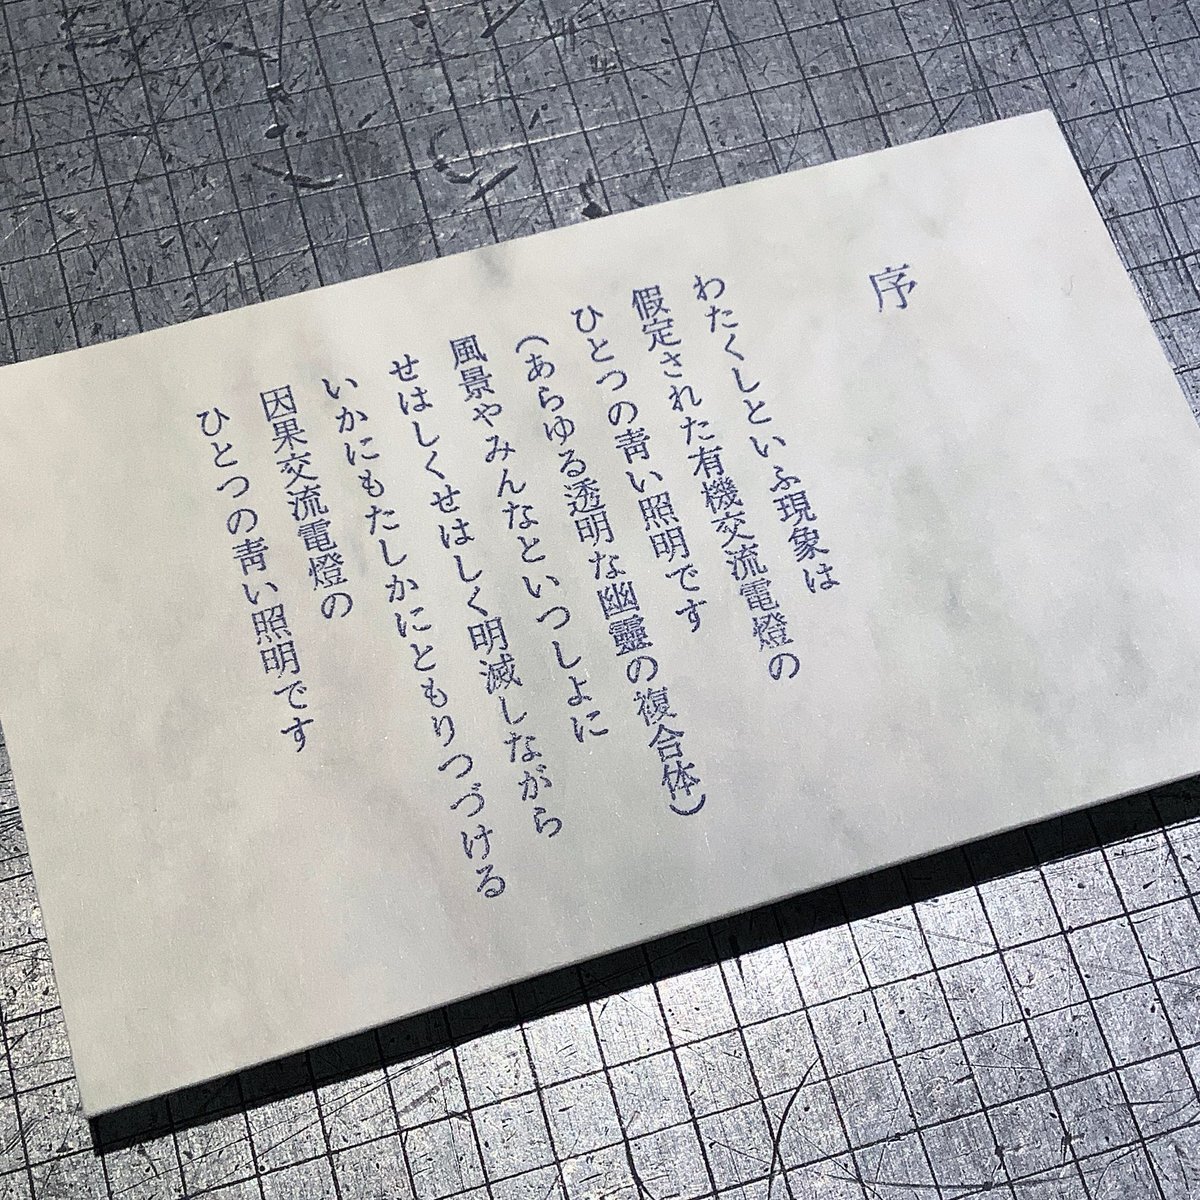 序
わたくしといふ現象は
假定された有機交流電燈の
ひとつの靑い照明です
(あらゆる透明な幽靈の複合体)
風景やみんなといつしよに
せはしくせはしく明滅しながら
いかにもたしかにともりつづける
因果交流電燈の
ひとつの靑い照明です